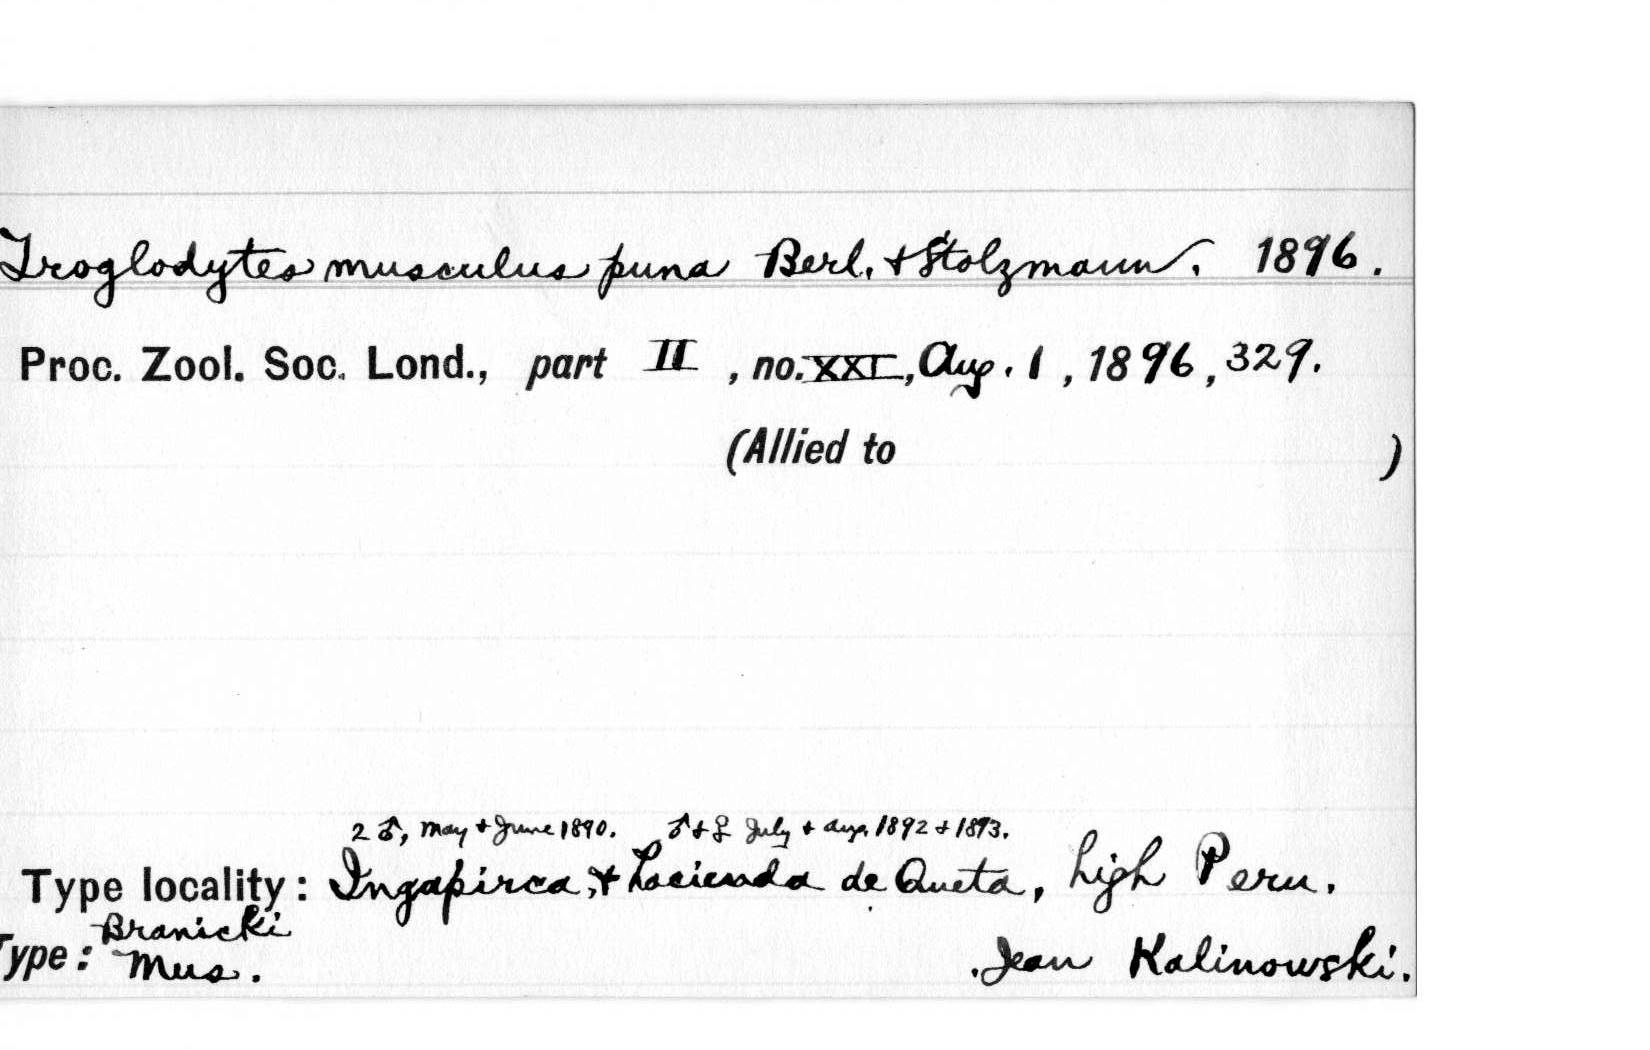 Troglodytes musculus puna Berl. + Stolzmann. 1896.
Proc. Zool. Soc. Lond., part II, no. XXI, Aug. 1, 1896, 329.
(Allied to )
2 ♂, May + June 1890. ♂ + ♀ July + Aug. 1892 + 1893.
Type locality: Ingapirca, + hacienda de Queta, high Peru.
Type: Branicki
Mus. Jean Kalinowski.